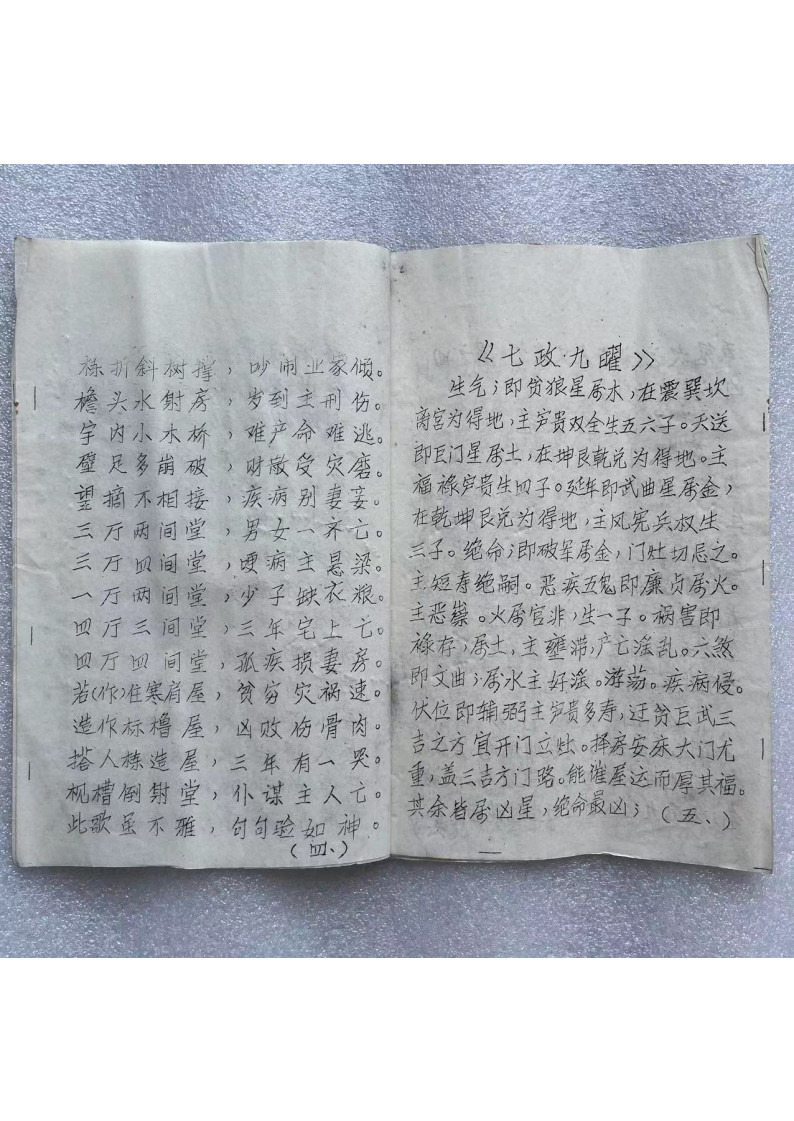 栋折斜树撑，吵闹业家倾。
檐头水射房，岁到主刑伤。
宇内小木桥，难产命难逃。
壁足多崩破，财散受灾磨。
望摘不相接，疾病别妻妾。
三厅两间堂，男女一齐亡。
三厅四间堂，哽病主悬梁。
一厅两间堂，少子缺衣粮。
四厅三间堂，三年宅上亡。
四厅四间堂，孤疾损妻房。
若(作)住寒肩屋，贫穷灾祸速。
造作标橹屋，凶败伤骨肉。
搭人栋造屋，三年有一哭。
枧槽倒射堂，仆谋主人亡。
此歌虽不雅，句句验如神。
(四、)
《七政·九曜》
生气；即贪狼星属木，在震巽坎
离宫为得地，主富贵双全生五六子。天送
即巨门星属土，在坤艮乾兑为得地。主
福禄富贵生四子。延年即武曲星属金，
在乾坤艮兑为得地，主风宪兵权生
三子。绝命；即破军属金，门灶切忌之。
主短寿绝嗣。恶疾五鬼即廉贞属火。
主恶。火属官非，生一子。祸害即
禄存，属土，主壅滞，产亡淫乱。六煞
即文曲；属水主好淫。游荡。疾病侵。
伏位即辅弼主富贵多寿，迁贪巨武三
吉之方宜开门立灶。择房安床大门尤
重，盖三吉方门路。能催屋运而厚其福。
其余皆属凶星，绝命最凶；(五、)